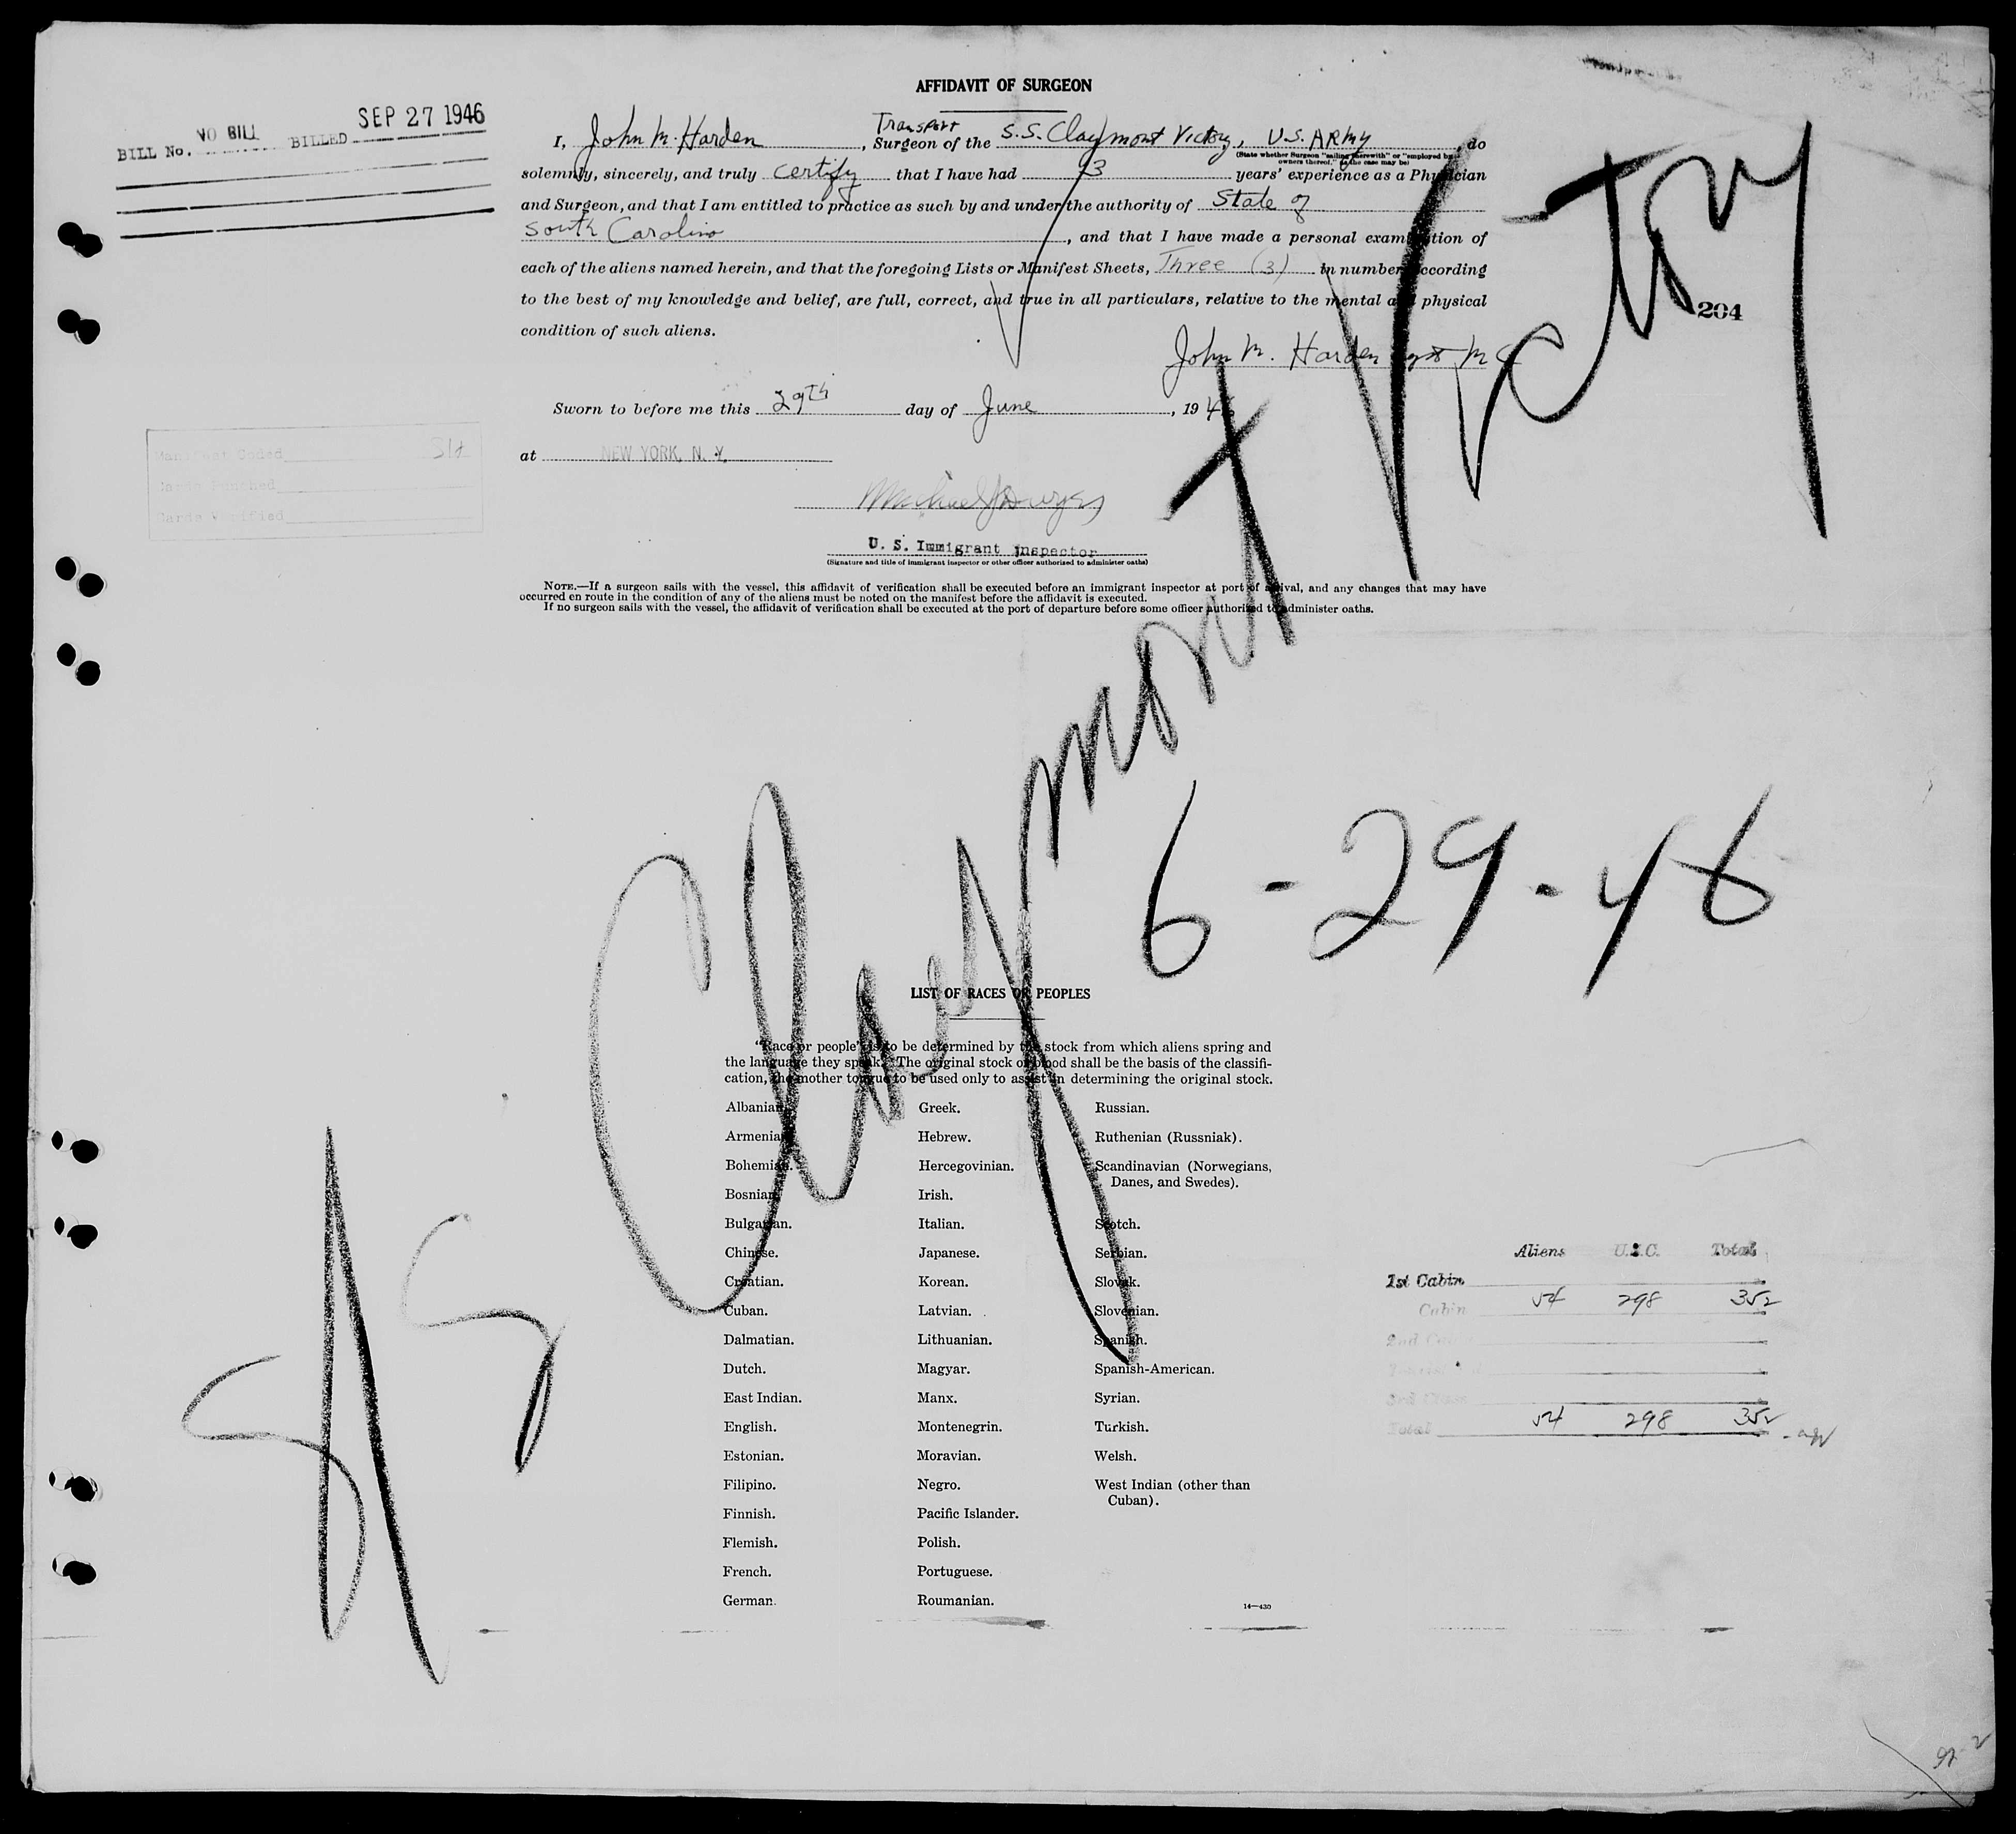 AFFIDAVIT OF SURGEON
BILL No. NO BILL BILLED SEP 27 1946
I, John M. Harden, Transport Surgeon of the S.S. Claymont Victory, U.S. ARMY, do
(State whether Surgeon "sailing therewith" or "employed by owners thereof," as the case may be)
solemnly, sincerely, and truly certify that I have had 3 years' experience as a Physician
and Surgeon, and that I am entitled to practice as such by and under the authority of State of
South Carolina, and that I have made a personal examination of
each of the aliens named herein, and that the foregoing Lists or Manifest Sheets, Three (3) in number, according
to the best of my knowledge and belief, are full, correct, and true in all particulars, relative to the mental and physical
condition of such aliens.
204
John M. Harden
Sworn to before me this 29th day of June, 1946
at NEW YORK, N. Y.
Manifest Coded
Cards Punched
Cards Verified
U. S. Immigrant Inspector
(Signature and title of immigrant inspector or other officer authorized to administer oaths)
NOTE.—If a surgeon sails with the vessel, this affidavit of verification shall be executed before an immigrant inspector at port of arrival, and any changes that may have
occurred en route in the condition of any of the aliens must be noted on the manifest before the affidavit is executed.
If no surgeon sails with the vessel, the affidavit of verification shall be executed at the port of departure before some officer authorized to administer oaths.
SS Claymont Victory
6-29-46
LIST OF RACES OR PEOPLES
"Race or people" is to be determined by the stock from which aliens spring and
the language they speak. The original stock or blood shall be the basis of the classifi-
cation, the mother tongue to be used only to assist in determining the original stock.
Albanian.
Armenian.
Bohemian.
Bosnian.
Bulgarian.
Chinese.
Croatian.
Cuban.
Dalmatian.
Dutch.
East Indian.
English.
Estonian.
Filipino.
Finnish.
Flemish.
French.
German.
Greek.
Hebrew.
Hercegovinian.
Irish.
Italian.
Japanese.
Korean.
Latvian.
Lithuanian.
Magyar.
Manx.
Montenegrin.
Moravian.
Negro.
Pacific Islander.
Polish.
Portuguese.
Roumanian.
Russian.
Ruthenian (Russniak).
Scandinavian (Norwegians,
Danes, and Swedes).
Scotch.
Serbian.
Slovak.
Slovenian.
Spanish.
Spanish-American.
Syrian.
Turkish.
Welsh.
West Indian (other than
Cuban).
14—430
Aliens U.S.C. Total
1st Cabin
Cabin 54 298 352
2nd Cabin
3rd Class
Total 54 298 352